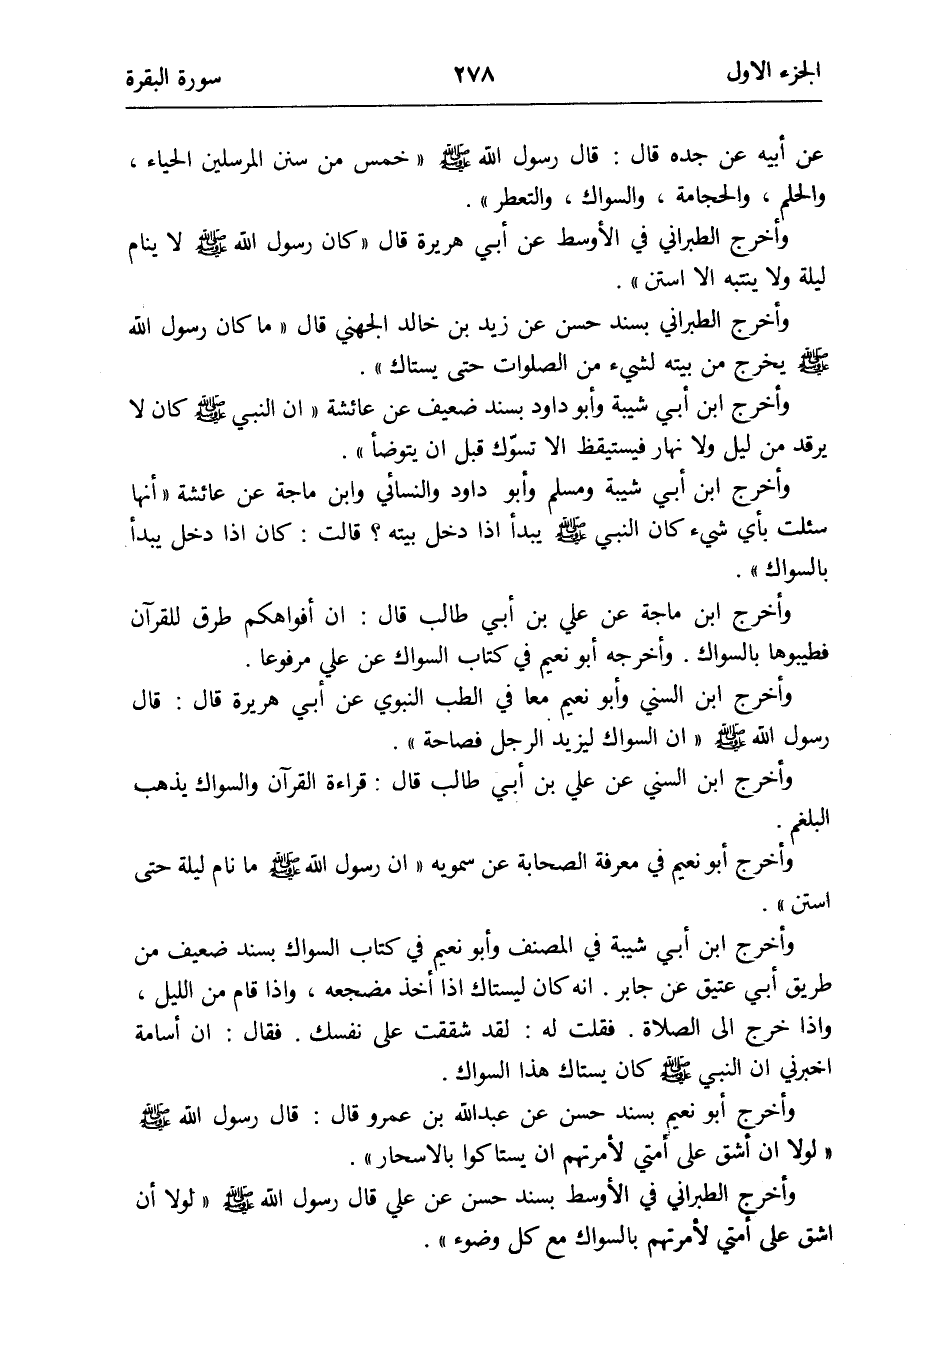 الجزء الاول ٢٧٨ سورة البقرة
عن أبيه عن جده قال : قال رسول الله ﷺ « خمس من سنن المرسلين الحياء ،
والحلم ، والحجامة ، والسواك ، والتعطر » .
وأخرج الطبراني في الأوسط عن أبي هريرة قال « كان رسول الله ﷺ لا ينام
ليلة ولا ينتبه الا استن » .
وأخرج الطبراني بسند حسن عن زيد بن خالد الجهني قال « ما كان رسول الله
ﷺ يخرج من بيته لشيء من الصلوات حتى يستاك » .
وأخرج ابن أبي شيبة وأبو داود بسند ضعيف عن عائشة « ان النبي ﷺ كان لا
يرقد من ليل ولا نهار فيستيقظ الا تسوّك قبل ان يتوضأ » .
وأخرج ابن أبي شيبة ومسلم وأبو داود والنسائي وابن ماجة عن عائشة « أنها
سئلت بأي شيء كان النبي ﷺ يبدأ اذا دخل بيته ؟ قالت : كان اذا دخل يبدأ
بالسواك » .
وأخرج ابن ماجة عن علي بن أبي طالب قال : ان أفواهكم طرق للقرآن
فطيبوها بالسواك . وأخرجه أبو نعيم في كتاب السواك عن علي مرفوعا .
وأخرج ابن السني وأبو نعيم معا في الطب النبوي عن أبي هريرة قال : قال
رسول الله ﷺ « ان السواك ليزيد الرجل فصاحة » .
وأخرج ابن السني عن علي بن أبي طالب قال : قراءة القرآن والسواك يذهب
البلغم .
وأخرج أبو نعيم في معرفة الصحابة عن سمويه « ان رسول الله ﷺ ما نام ليلة حتى
استن » .
وأخرج ابن أبي شيبة في المصنف وأبو نعيم في كتاب السواك بسند ضعيف من
طريق أبي عتيق عن جابر . انه كان ليستاك اذا أخذ مضجعه ، واذا قام من الليل ،
واذا خرج الى الصلاة . فقلت له : لقد شققت على نفسك . فقال : ان أسامة
اخبرني ان النبي ﷺ كان يستاك هذا السواك .
وأخرج أبو نعيم بسند حسن عن عبدالله بن عمرو قال : قال رسول الله ﷺ
« لولا ان أشق على أمتي لأمرتهم ان يستاكوا بالاسحار » .
وأخرج الطبراني في الأوسط بسند حسن عن علي قال رسول الله ﷺ « لولا أن
اشق على أمتي لأمرتهم بالسواك مع كل وضوء » .